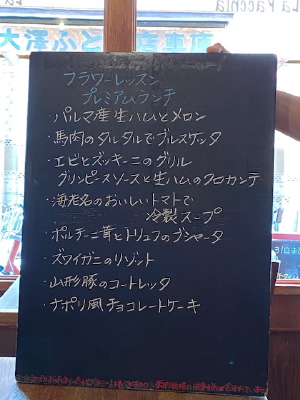 La Pacchia
フラワーレッスン
プレミアムランチ
・パルマ産生ハムとメロン
・馬肉のタルタルでブルスケッタ
・エビとズッキーニのグリル
グリンピースソースと生ハムのクロカンテ
・海老名のおいしいトマトで
冷製スープ
・ポルチーニ茸とトリュフのブシャータ
・ズワイガニのリゾット
・山形豚のコートレッタ
・ナポリ風チョコレートケーキ